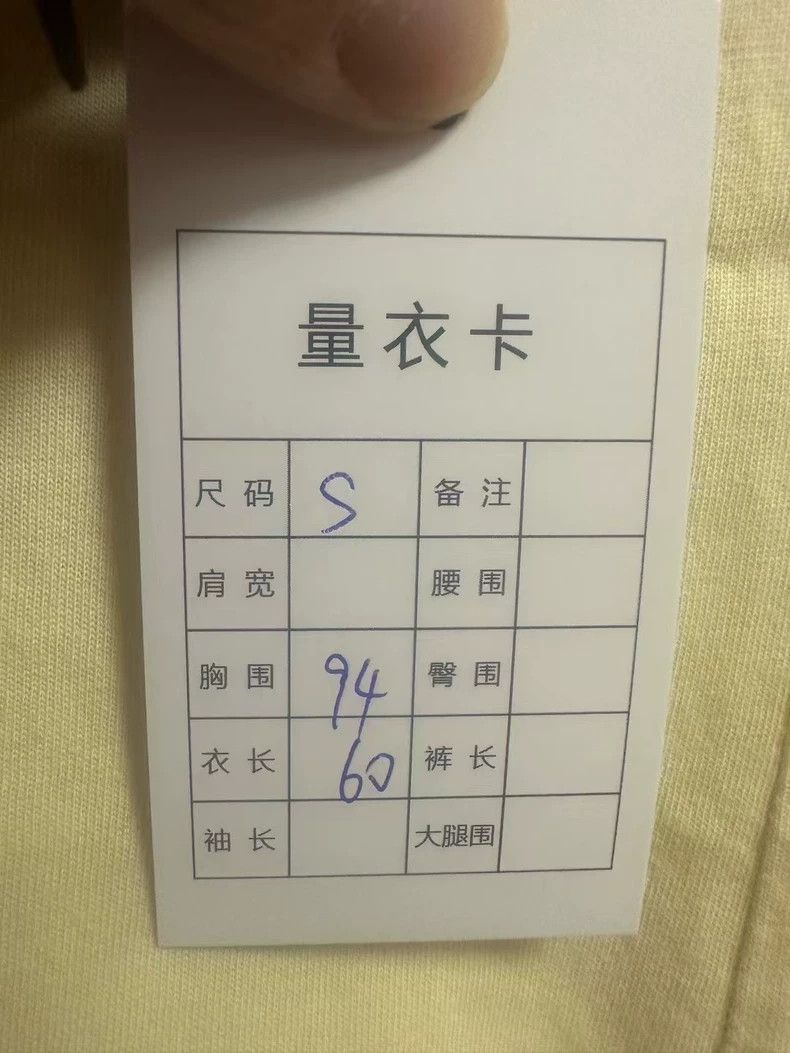 量衣卡
尺码 S 备注
肩宽 腰围
胸围 94 臀围
衣长 60 裤长
袖长 大腿围